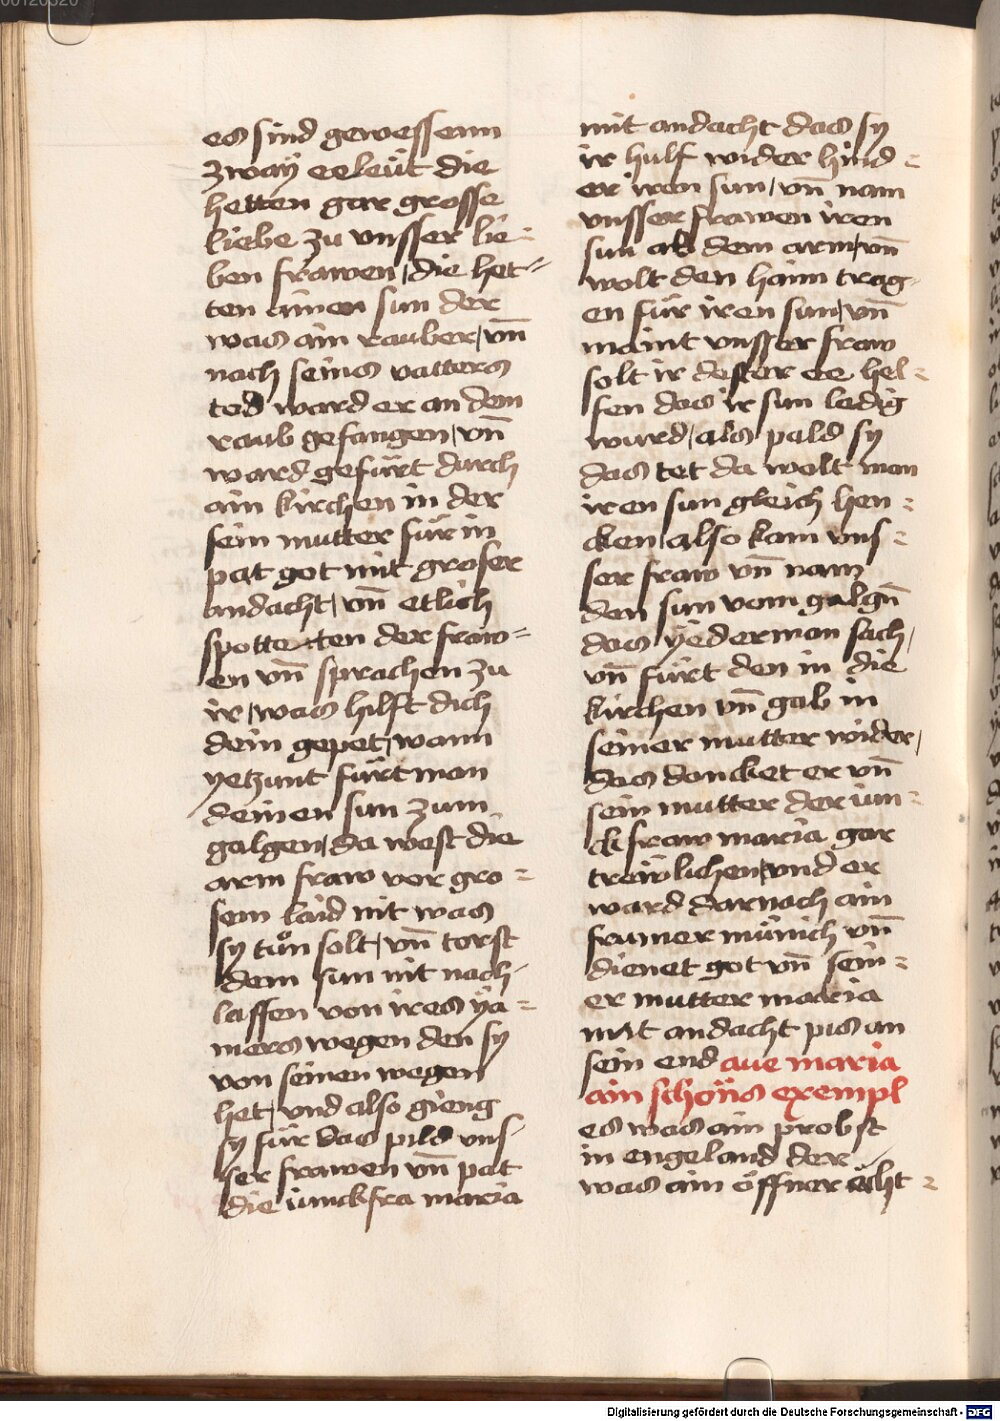 es sind gewessenn
zway eeleut die
hetten gar grosse
liebe zu vnsser lie⸗
ben frawen / die het⸗
ten ainen sun der
was ain rauber / vn̄
nach seins vatters
tod ward er an dem
raub gefangen / vn̄
ward gefürt durch
ain kirchen in der
sein mutter für in
pat got mit groser
andacht / vn̄ etlich
spotteten der fraw⸗
en vn̄ sprachen zu
ir / was hilft dich
dein gepet / wann
yetzunt fürt man
deinen sun zum
galgen / da west die
arm fraw vor gro⸗
sem laid nit was
sy tůn solt / vn̄ torst
dem sun nit nach⸗
lassen von ires ya⸗
mers wegen den sy
von seinen wegen
het / vnd also gieng
sy für das pild vns⸗
ser frawen vn̄ pat
die iunckfra maria
mit andacht das sy
ir hulf wider hind⸗
er iren sun / vn̄ nam
vnsser frawen iren
sun ab dem arm / vn̄
wolt den haim trag⸗
en für iren sun / vn̄
maint vnsser fraw
solt ir dester ee hel⸗
fen das ir sun ledig
wurd / als pald sy
das tet da wolt man
iren sun gleich hen⸗
cken also kam vns⸗
ser fraw vn̄ nam
den sun vom galgn̄
das yederman sach /
vn̄ fürt den in die
kirchen vn̄ gab in
seiner mutter wider /
das dancket er vn̄
sein mutter der iun⸗
ckfraw maria gar
trewlichen / vnd er
ward darnach ain
frumer münich vn̄
dienet got vn̄ sein⸗
er mutter maria
mit andacht pis an
sein end aue maria
ain schöns exempl
es was ain probst
in engeland der
was ain öffner echt⸗
00126320
Digitalisierung gefördert durch die Deutsche Forschungsgemeinschaft - DFG